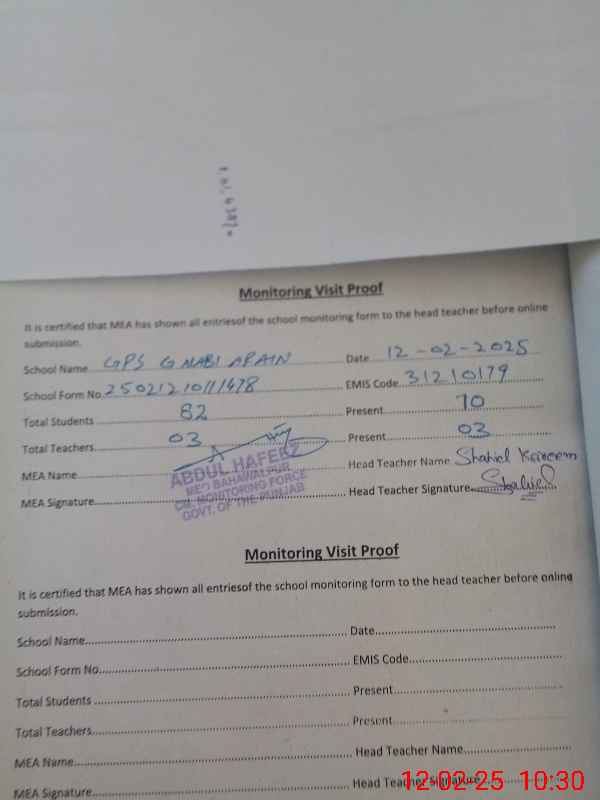 Monitoring Visit Proof
It is certified that MEA has shown all entriesof the school monitoring form to the head teacher before online
submission.
School Name GPS G NABI ARAIN Date 12-02-2025
School Form No. 25021210111478 EMIS Code 31210179
Total Students 82 Present 70
Total Teachers 03 Present 03
MEA Name Head Teacher Name Shahid Kareem
MEA Signature Head Teacher Signature Shahid
ABDUL HAFEEZ
MEO BAHAWALPUR
CM, MONITORING FORCE
GOVT. OF THE PUNJAB
Monitoring Visit Proof
It is certified that MEA has shown all entriesof the school monitoring form to the head teacher before online
submission.
School Name Date
School Form No. EMIS Code
Total Students Present
Total Teachers Present
MEA Name Head Teacher Name
MEA Signature Head Teacher Signature
12-02-25 10:30